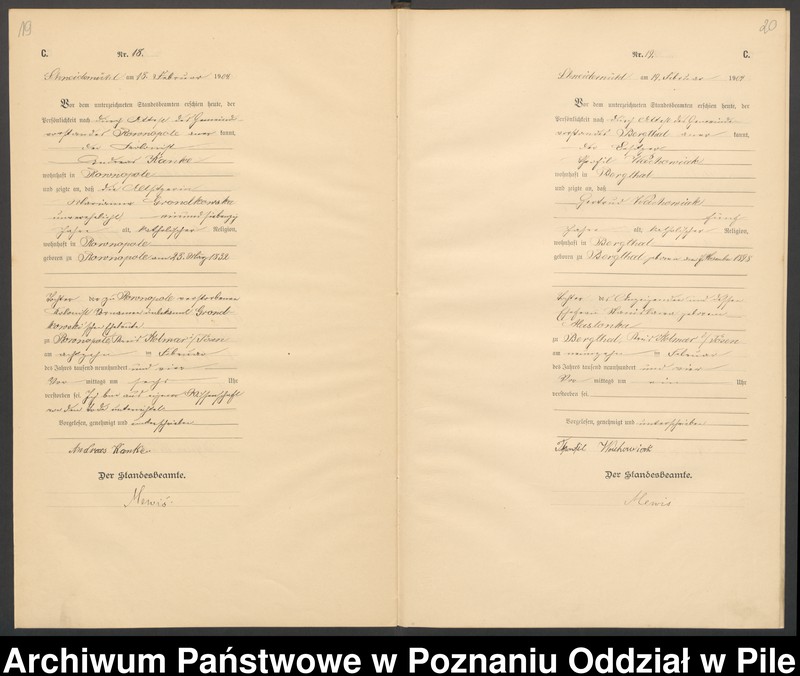 19
C.
Nr. 18.
Schneidemühl am 18. Februar 1904
Vor dem unterzeichneten Standesbeamten erschien heute, der
Persönlichkeit nach durch Attest des Gemeinde-
vorstandes Rownopole aner kannt,
der Kolonist
Andreas Kanke
wohnhaft in Rownopole
und zeigte an, daß die Altsitzerin
Marianna Grondkowska
unverehelicht
Jahre alt, katholischer Religion,
wohnhaft in Rownopole
geboren zu Rownopole am 25. März 1832
Tochter der zu Rownopole verstorbenen
Kolonist Vornamen unbekannt Grond-
kowski'schen Eheleute
zu Rownopole, Kreis Kolmar i/Posen
am achtzehn ten Februar
des Jahres tausend neunhundert und vier
Vor mittags um sechs Uhr
verstorben sei. Ich bin aus eigener Wissenschaft
von dem Tode unterrichtet.
Vorgelesen, genehmigt und unterschrieben
Andreas Kanke
Der Standesbeamte.
Mewis.
20
Nr. 19.
C.
Schneidemühl am 19. Februar 1904
Vor dem unterzeichneten Standesbeamten erschien heute, der
Persönlichkeit nach durch Attest des Gemeinde-
vorstandes Bergthal aner kannt,
der Besitzer
Wachowiak
wohnhaft in Bergthal
und zeigte an, daß
Gertrud Wachowiak
fünf
Jahre alt, katholischer Religion,
wohnhaft in Bergthal
geboren zu Bergthal geboren am November 1898
Tochter des Anzeigenden und dessen
Ehefrau Stanislawa geborenen
Maslonka
zu Bergthal, Kreis Kolmar i/Posen
am neunzehn ten Februar
des Jahres tausend neunhundert und vier
Vor mittags um vier Uhr
verstorben sei.
Vorgelesen, genehmigt und unterschrieben
Wachowiak
Der Standesbeamte.
Mewis
Archiwum Państwowe w Poznaniu Oddział w Pile